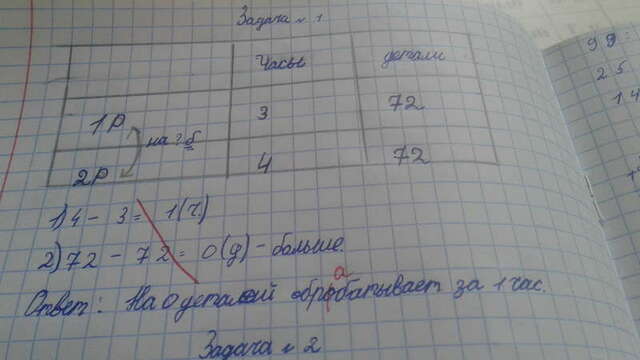 Задача № 1
Часы детали
1р 3 72
на ? б
2р 4 72
1) 4 - 3 = 1 (ч.)
2) 72 - 72 = 0 (д) - больше.
Ответ: На 0 деталей обрабатывает за 1 час.
Задача № 2
99:
25
14